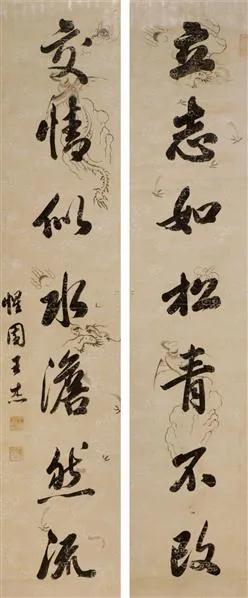 立志如松青不改
交情似水澹然流
惺園王杰